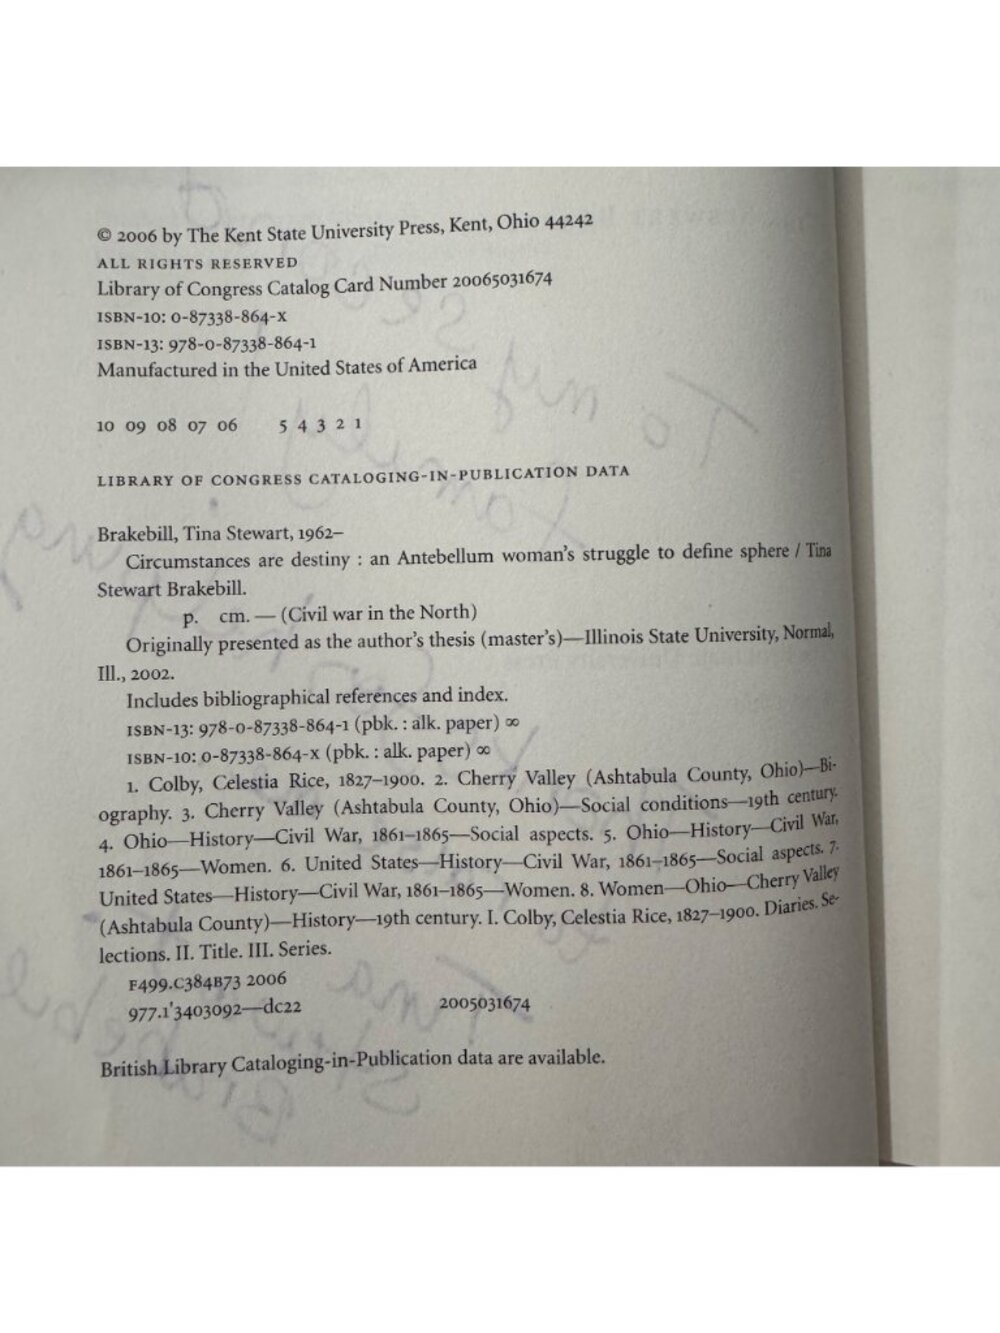 © 2006 by The Kent State University Press, Kent, Ohio 44242
ALL RIGHTS RESERVED
Library of Congress Catalog Card Number 20065031674
ISBN-10: 0-87338-864-X
ISBN-13: 978-0-87338-864-1
Manufactured in the United States of America
10 09 08 07 06 5 4 3 2 1
LIBRARY OF CONGRESS CATALOGING-IN-PUBLICATION DATA
Brakebill, Tina Stewart, 1962–
Circumstances are destiny : an Antebellum woman's struggle to define sphere / Tina
Stewart Brakebill.
p. cm. — (Civil war in the North)
Originally presented as the author's thesis (master's)—Illinois State University, Normal,
Ill., 2002.
Includes bibliographical references and index.
ISBN-13: 978-0-87338-864-1 (pbk. : alk. paper) ∞
ISBN-10: 0-87338-864-X (pbk. : alk. paper) ∞
1. Colby, Celestia Rice, 1827–1900. 2. Cherry Valley (Ashtabula County, Ohio)—Bi-
ography. 3. Cherry Valley (Ashtabula County, Ohio)—Social conditions—19th century.
4. Ohio—History—Civil War, 1861–1865—Social aspects. 5. Ohio—History—Civil War,
1861–1865—Women. 6. United States—History—Civil War, 1861–1865—Social aspects. 7.
United States—History—Civil War, 1861–1865—Women. 8. Women—Ohio—Cherry Valley
(Ashtabula County)—History—19th century. I. Colby, Celestia Rice, 1827–1900. Diaries. Se-
lections. II. Title. III. Series.
F499.C384B73 2006
977.1'3403092—dc22 2005031674
British Library Cataloging-in-Publication data are available.